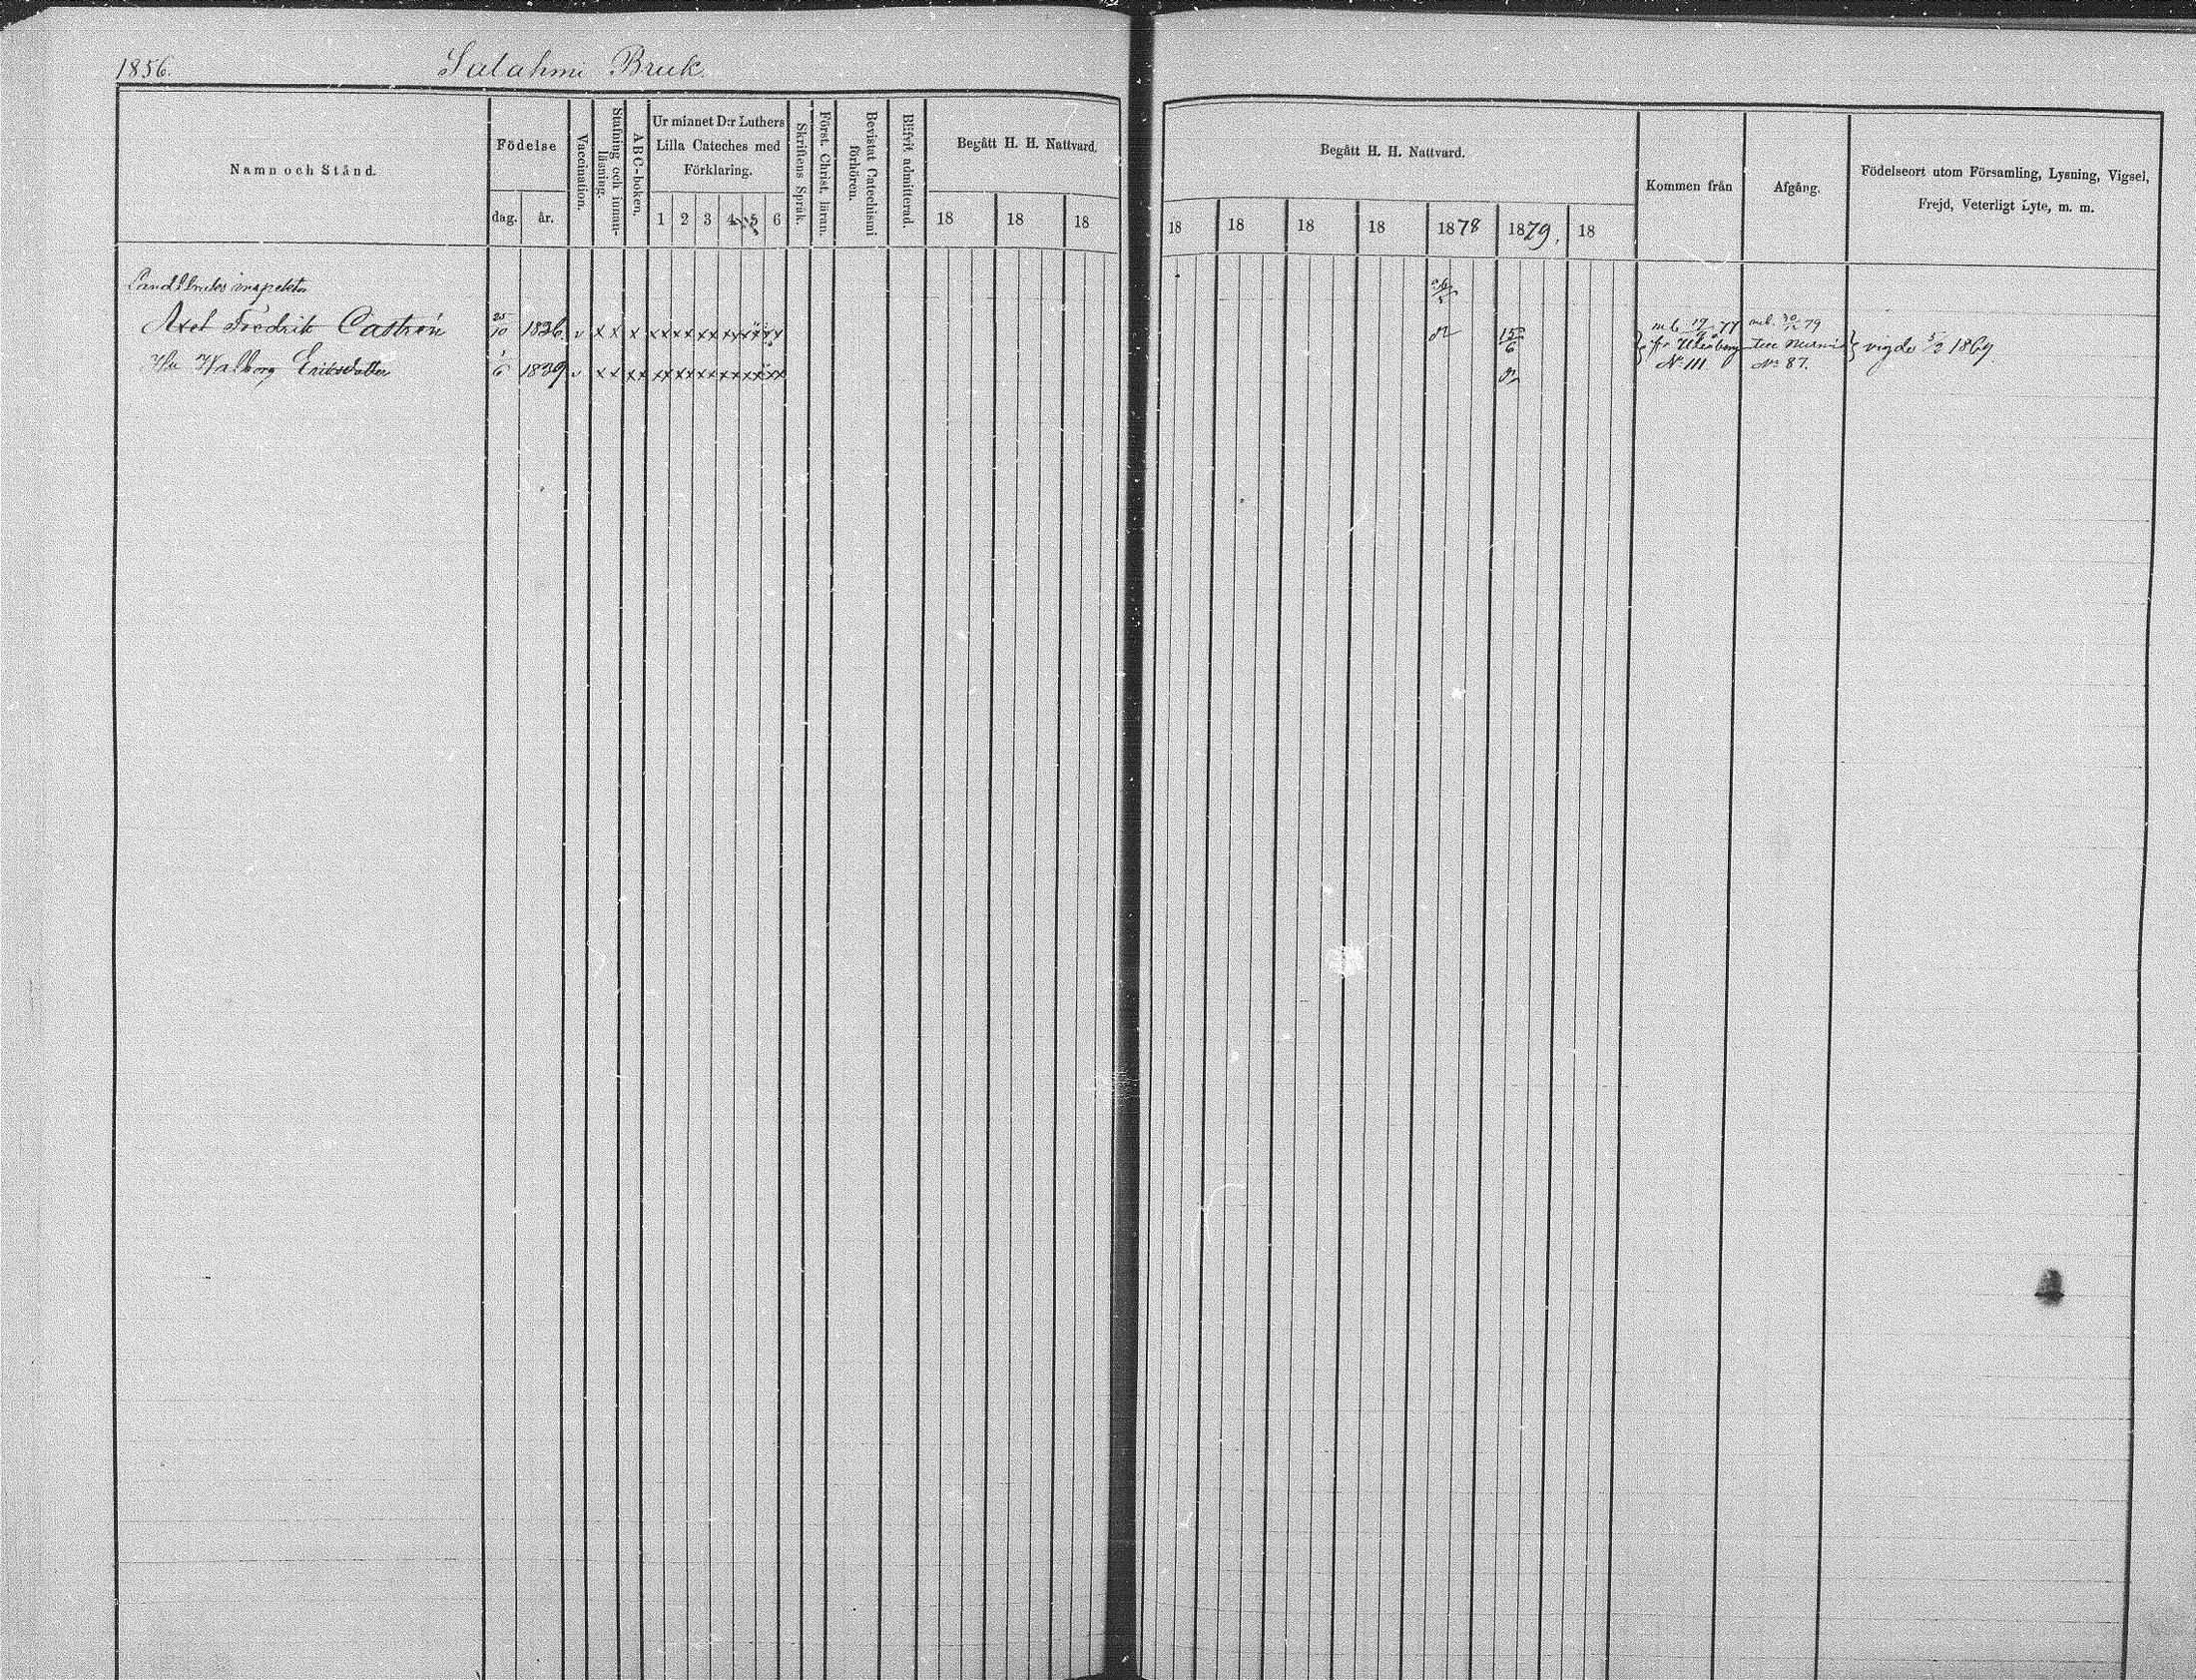 1856. Salahmi Bruk.
Namn och Stånd.
Födelse
dag. år.
Vaccination.
Stafning och innan-
läsning.
ABC-boken.
Ur mianet D:r Luthers
Lilla Cateches med
Förklaring.
1 2 3 4 5 6
Skriftens Språk.
Först. Christ. läran.
Bevistat Catechismi
förhören.
Blifvit admitterad.
Begått H. H. Nattvard.
18 18 18
Begått H. H. Nattvard.
18 18 18 18 1878 1879. 18
Kommen från
Afgång.
Födelseort utom Församling, Lysning, Vigsel,
Frejd, Veterligt Lyte, m. m.
Landtbruks inspektor
Axel Fredrik Castrén 25/10 1836. v x x x xx xx xx xx xx xx 15/6 mb 17/9 77 mb. 30/12 79
fr. Uleåborg vigde 5/2 1869.
N: 111 N: 87.
Hu Walborg Eriksdotter 1/6 1839 v x x xx xx xx xx xx xx xx